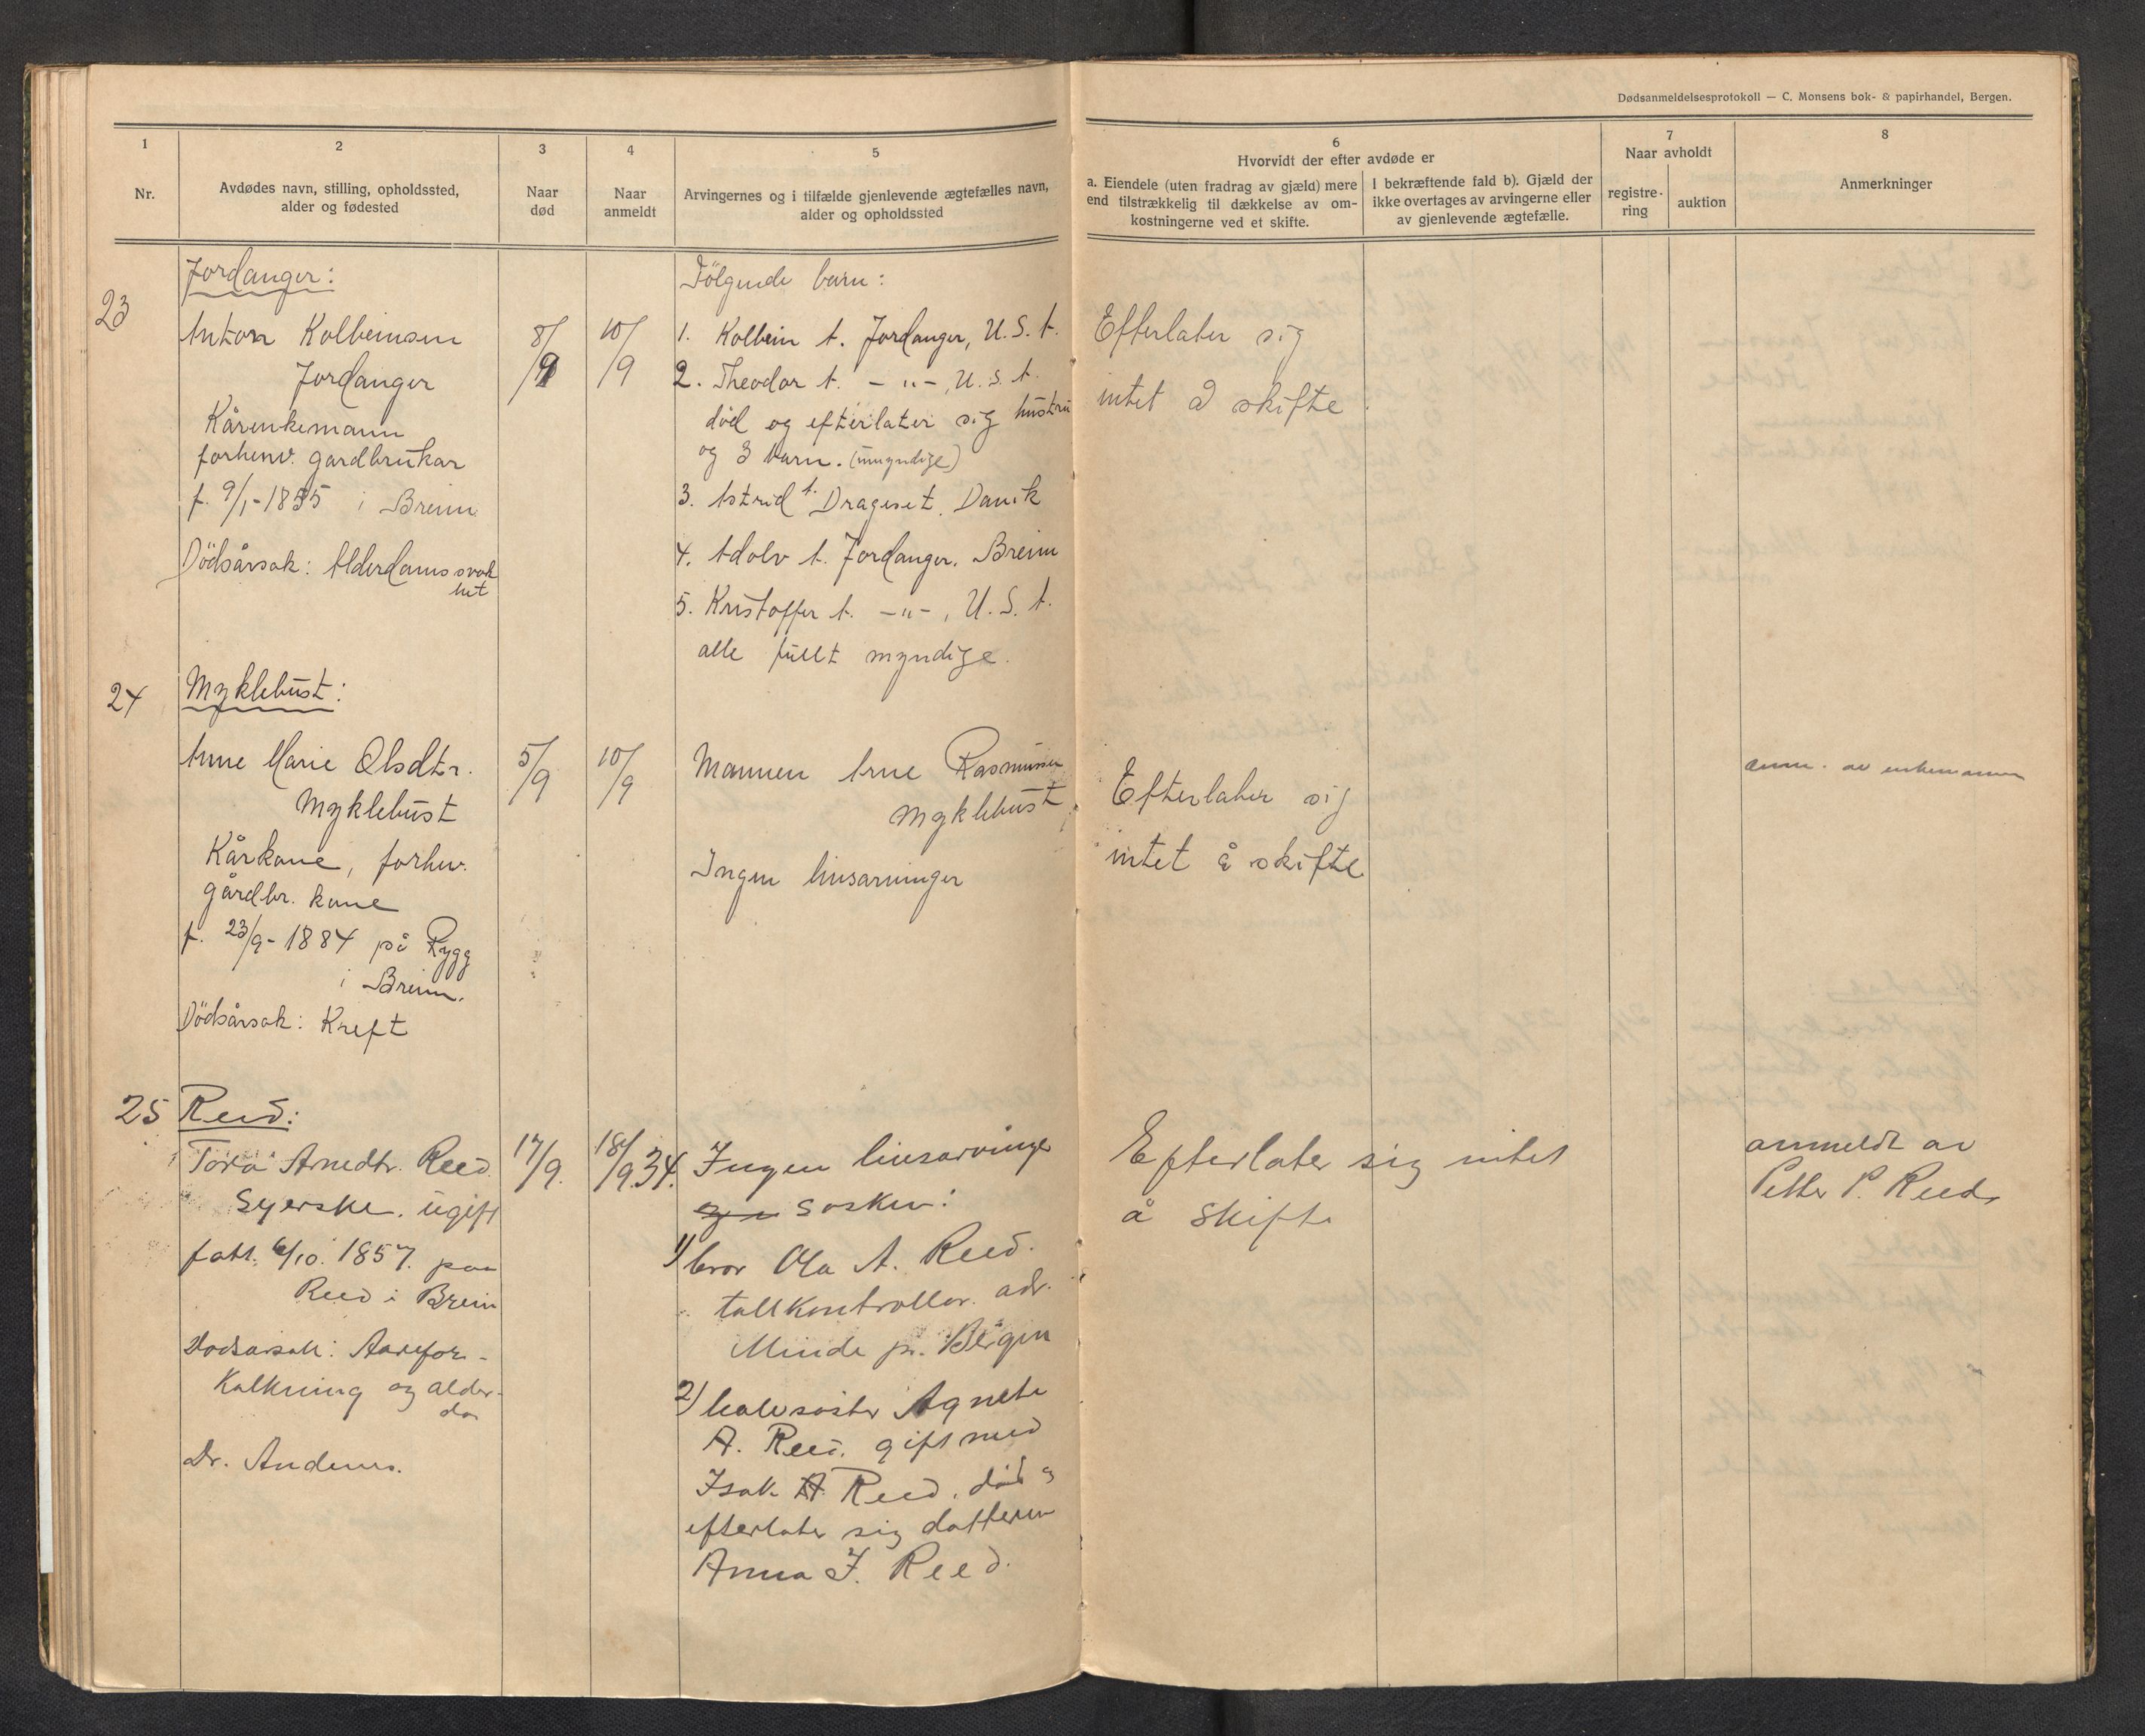 Dødsanmeldelsesprotokoll — C. Monsens bok- & papirhandel, Bergen.
1
2
3
4
5
6
7
8
Nr.
Avdødes navn, stilling, opholdssted,
alder og fødested
Naar
død
Naar
anmeldt
Arvingernes og i tilfælde gjenlevende ægtefælles navn,
alder og opholdssted
Hvorvidt der efter avdøde er
a. Eiendele (uten fradrag av gjæld) mere
end tilstrækkelig til dækkelse av om-
kostningerne ved et skifte.
I bekræftende fald b). Gjæld der
ikke overtages av arvingerne eller
av gjenlevende ægtefælle.
Naar avholdt
registre-
ring
auktion
Anmerkninger
23
Jordanger:
Anton Kolbeinsen
Jordanger
Kårenkemann
forhenv. gardbrukar
f. 9/1-1855 i Breim
Dödsårsak: Alderdomssvak
het
8/9
10/9
Følgende barn:
1. Kolbein A. Jordanger, U.S.A.
2. Theodor A. -"-, U.S.A.
död og efterlater sig hustru
og 3 barn. (umyndige)
3. Astrid A. Drageset. Davik
4. Adolv A. Jordanger. Breim
5. Kristoffer A. -"-, U.S.A.
alle fullt myndige.
Efterlater sig
intet å skifte
24
Myklebust:
Anne Marie Olsdtr.
Myklebust
Kårkone, forhv.
gårdbr. kone
f. 23/9-1884 på Rygg
i Breim.
Dödsårsak: Kreft
5/9
10/9
Mannen Arne Rasmussen
Myklebust
Ingen livsarvinger
Efterlater sig
intet å skifte
anm. av enkemannen
25
Reed:
Tora Arnedtr. Reed
Syerske. ugift
født. 6/10. 1857. paa
Reed i Breim
Dødsarsak: Aarefor-
kalkning og alder-
dom
Dr. Andenes.
17/9.
18/9.34.
Ingen livsarvinger
søsken:
1) bror Ola A. Reed.
tollkontrollør. adr.
Minde pr. Bergen
2) halvsøster Agnete
A. Reed. gift med
Isak A Reed. død og
efterlater sig datteren
Anna I. Reed.
Efterlater sig intet
å skifte
anmeldt av
Petter P. Reed